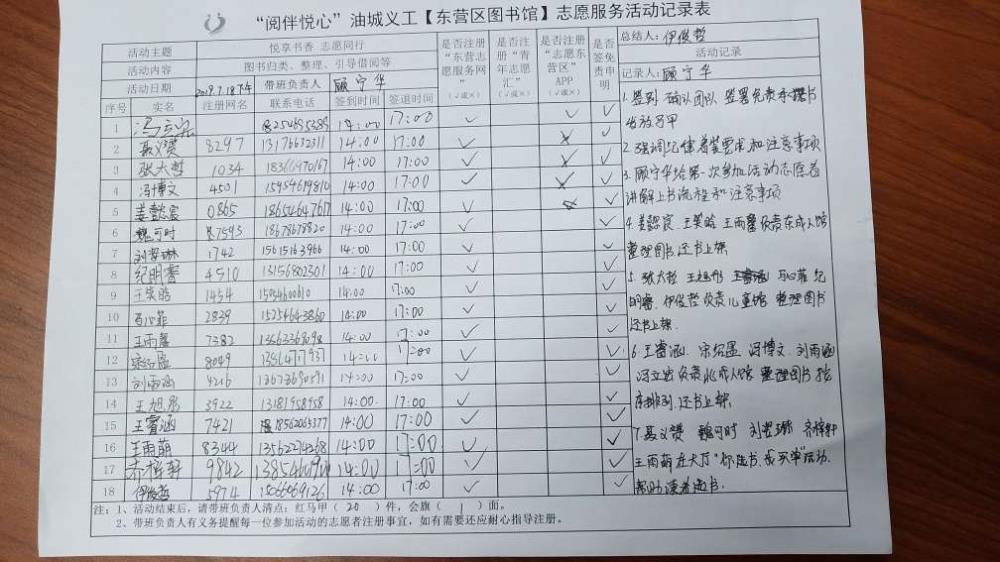 “阅伴悦心”油城义工【东营区图书馆】志愿服务活动记录表
活动主题 悦享书香 志愿同行
活动内容 图书归类、整理、引导借阅等
活动日期 2019.7.18下午 带班负责人 顾宁华
序号 实名 注册网名 联系电话 签到时间 签退时间 是否注册“东营志愿服务网”(√或×) 是否注册“青年志愿汇”(√或×) 是否注册“志愿东营区”APP(√或×) 是否签免责申明
总结人：伊俊哲
活动记录
记录人：顾宁华
1 冯立宗 14:00 17:00 √ √ √
2 聂义赟 8297 13176632311 14:00 17:00 √ × √
3 张大哲 1034 14:00 17:00 √ × √
4 冯博文 4501 15954619810 14:00 17:00 √ × √
5 姜懿宸 0865 18654647617 14:00 17:00 √ √
6 魏可时 7593 18678678820 14:00 17:00 √ √
7 刘哲琳 1742 15615163966 14:00 17:00 √ √
8 纪明睿 4510 13156802301 14:00 17:00 √ √
9 王笑晗 1454 14:00 17:00 √ √
10 马心菲 2839 15254643860 14:00 17:00 √ √
11 王雨馨 7382 17:00 √ √
12 宋绍孟 8049 14:00 17:00 √ √
13 刘雨涵 4216 14:00 17:00 √ √
14 王旭彤 3922 13181958958 14:00 17:00 √ √
15 王睿涵 7421 18562065377 14:00 17:00 √ √
16 王雨萌 8344 14:00 17:00 √ √
17 齐梓轩 9842 14:00 17:00 √ √
18 伊俊哲 5974 15066069126 14:00 17:00 √ √
1.签到 确认团队 签署免责承诺书
发放马甲
2.强调纪律着装要求和注意事项
3.顾宁华给第一次参加活动志愿者
讲解上书流程和注意事项
4.姜懿宸、王笑晗 王雨馨负责东成人馆
整理图书 还书上架
5.张大哲 王旭彤 王睿涵 马心菲 纪
明睿、伊俊哲负责儿童馆 整理图书
还书上架.
6.王睿涵、宋绍孟 冯博文、刘雨涵
冯立宗负责北成人馆 整理图书 按
序排列 还书上架.
7.聂义赟 魏可时 刘哲琳 齐梓轩
王雨萌在大厅“你选书、我买单”活动.
帮助读者选书.
注：1、活动结束后，请带班负责人清点：红马甲（ 20 ）件，会旗（ 1 ）面。
2、带班负责人有义务提醒每一位参加活动的志愿者注册事宜，如有需要还应耐心指导注册。